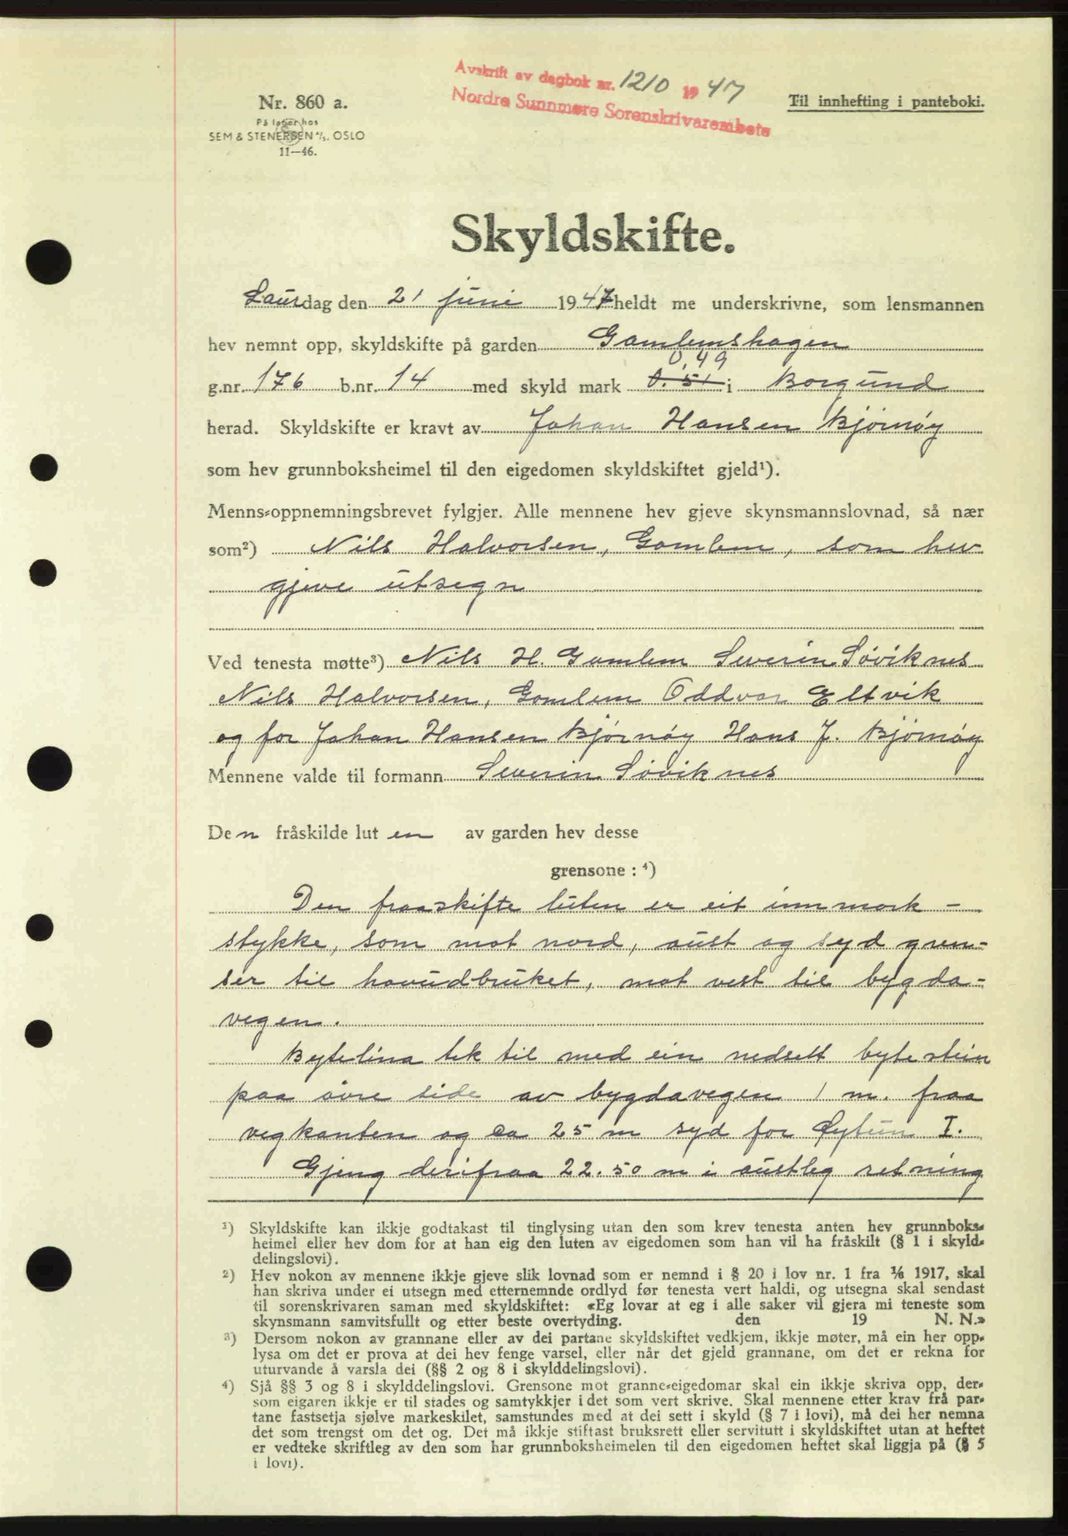 Avskrift av dagbok nr. 1210 1947
Nordre Sunnmøre Sorenskrivarembete
Nr. 860 a.
På lager hos
SEM & STENERSEN A/S. OSLO
11—46.
Til innhefting i panteboki.
Skyldskifte.
Laurdag den 21 juni 1947 heldt me underskrivne, som lensmannen
hev nemnt opp, skyldskifte på garden Gamlemshagen
0,49
g.nr. 176 b.nr. 14 med skyld mark 0.51 i Borgund
herad. Skyldskifte er kravt av Johan Hansen Bjørnøy
som hev grunnboksheimel til den eigedomen skyldskiftet gjeld¹).
Menns-oppnemningsbrevet fylgjer. Alle mennene hev gjeve skynsmannslovnad, så nær
som²) Nils Halvorsen, Gamlem, som hev
gjeve utsegn
Ved tenesta møtte³) Nils H. Gamlem Severin Søviknes
Nils Halvorsen, Gamlem Oddvar Eltvik
og for Johan Hansen Bjørnøy Hans J. Bjørnøy
Mennene valde til formann Severin Søviknes
Den fråskilde luten av garden hev desse
grensone : ⁴)
Den fraaskifte luten er eit innmark-
stykke, som mot nord, aust og syd gren-
ser til hovudbruket, mot vest til bygda-
vegen.
Bytelina tek til med ein nedsett bytestein
paa øvre side av bygdavegen 1 m. fraa
vegkanten og ca 25 m syd for Øytun I.
Gjeng derifraa 22.50 m i austleg retning
¹) Skyldskifte kan ikkje godtakast til tinglysing utan den som krev tenesta anten hev grunnboks-
heimel eller hev dom for at han eig den luten av eigedomen som han vil ha fråskilt (§ 1 i skyld-
delingslovi).
²) Hev nokon av mennene ikkje gjeve slik lovnad som er nemnd i § 20 i lov nr. 1 fra ¹/₆ 1917, skal
han skriva under ei utsegn med etternemnde ordlyd før tenesta vert haldi, og utsegna skal sendast
til sorenskrivaren saman med skyldskiftet: «Eg lovar at eg i alle saker vil gjera mi teneste som
skynsmann samvitsfullt og etter beste overtyding. den 19 N. N.»
³) Dersom nokon av grannane eller av dei partane skyldskiftet vedkjem, ikkje møter, må ein her opp-
lysa om det er prova at dei hev fenge varsel, eller når det gjeld grannane, om det er rekna for
uturvande å varsla dei (§§ 2 og 8 i skylddelingslovi).
⁴) Sjå §§ 3 og 8 i skylddelingslovi. Grensone mot granne-eigedomar skal ein ikkje skriva opp, der-
som eigaren ikkje er til stades og samtykkjer i det som vert skrive. Skal mennene etter krav frå par-
tane fastsetja sjølve markeskilet, samstundes med at dei sett i skyld (§ 7 i lovi), må dei her nemna
det som trengst om det og. Det må ikkje stiftast bruksrett eller servitutt i skyldskiftet utan at heftet
er vedteke skriftleg av den som har grunnboksheimelen til den eigedomen heftet skal liggja på (§ 5
i lovi).